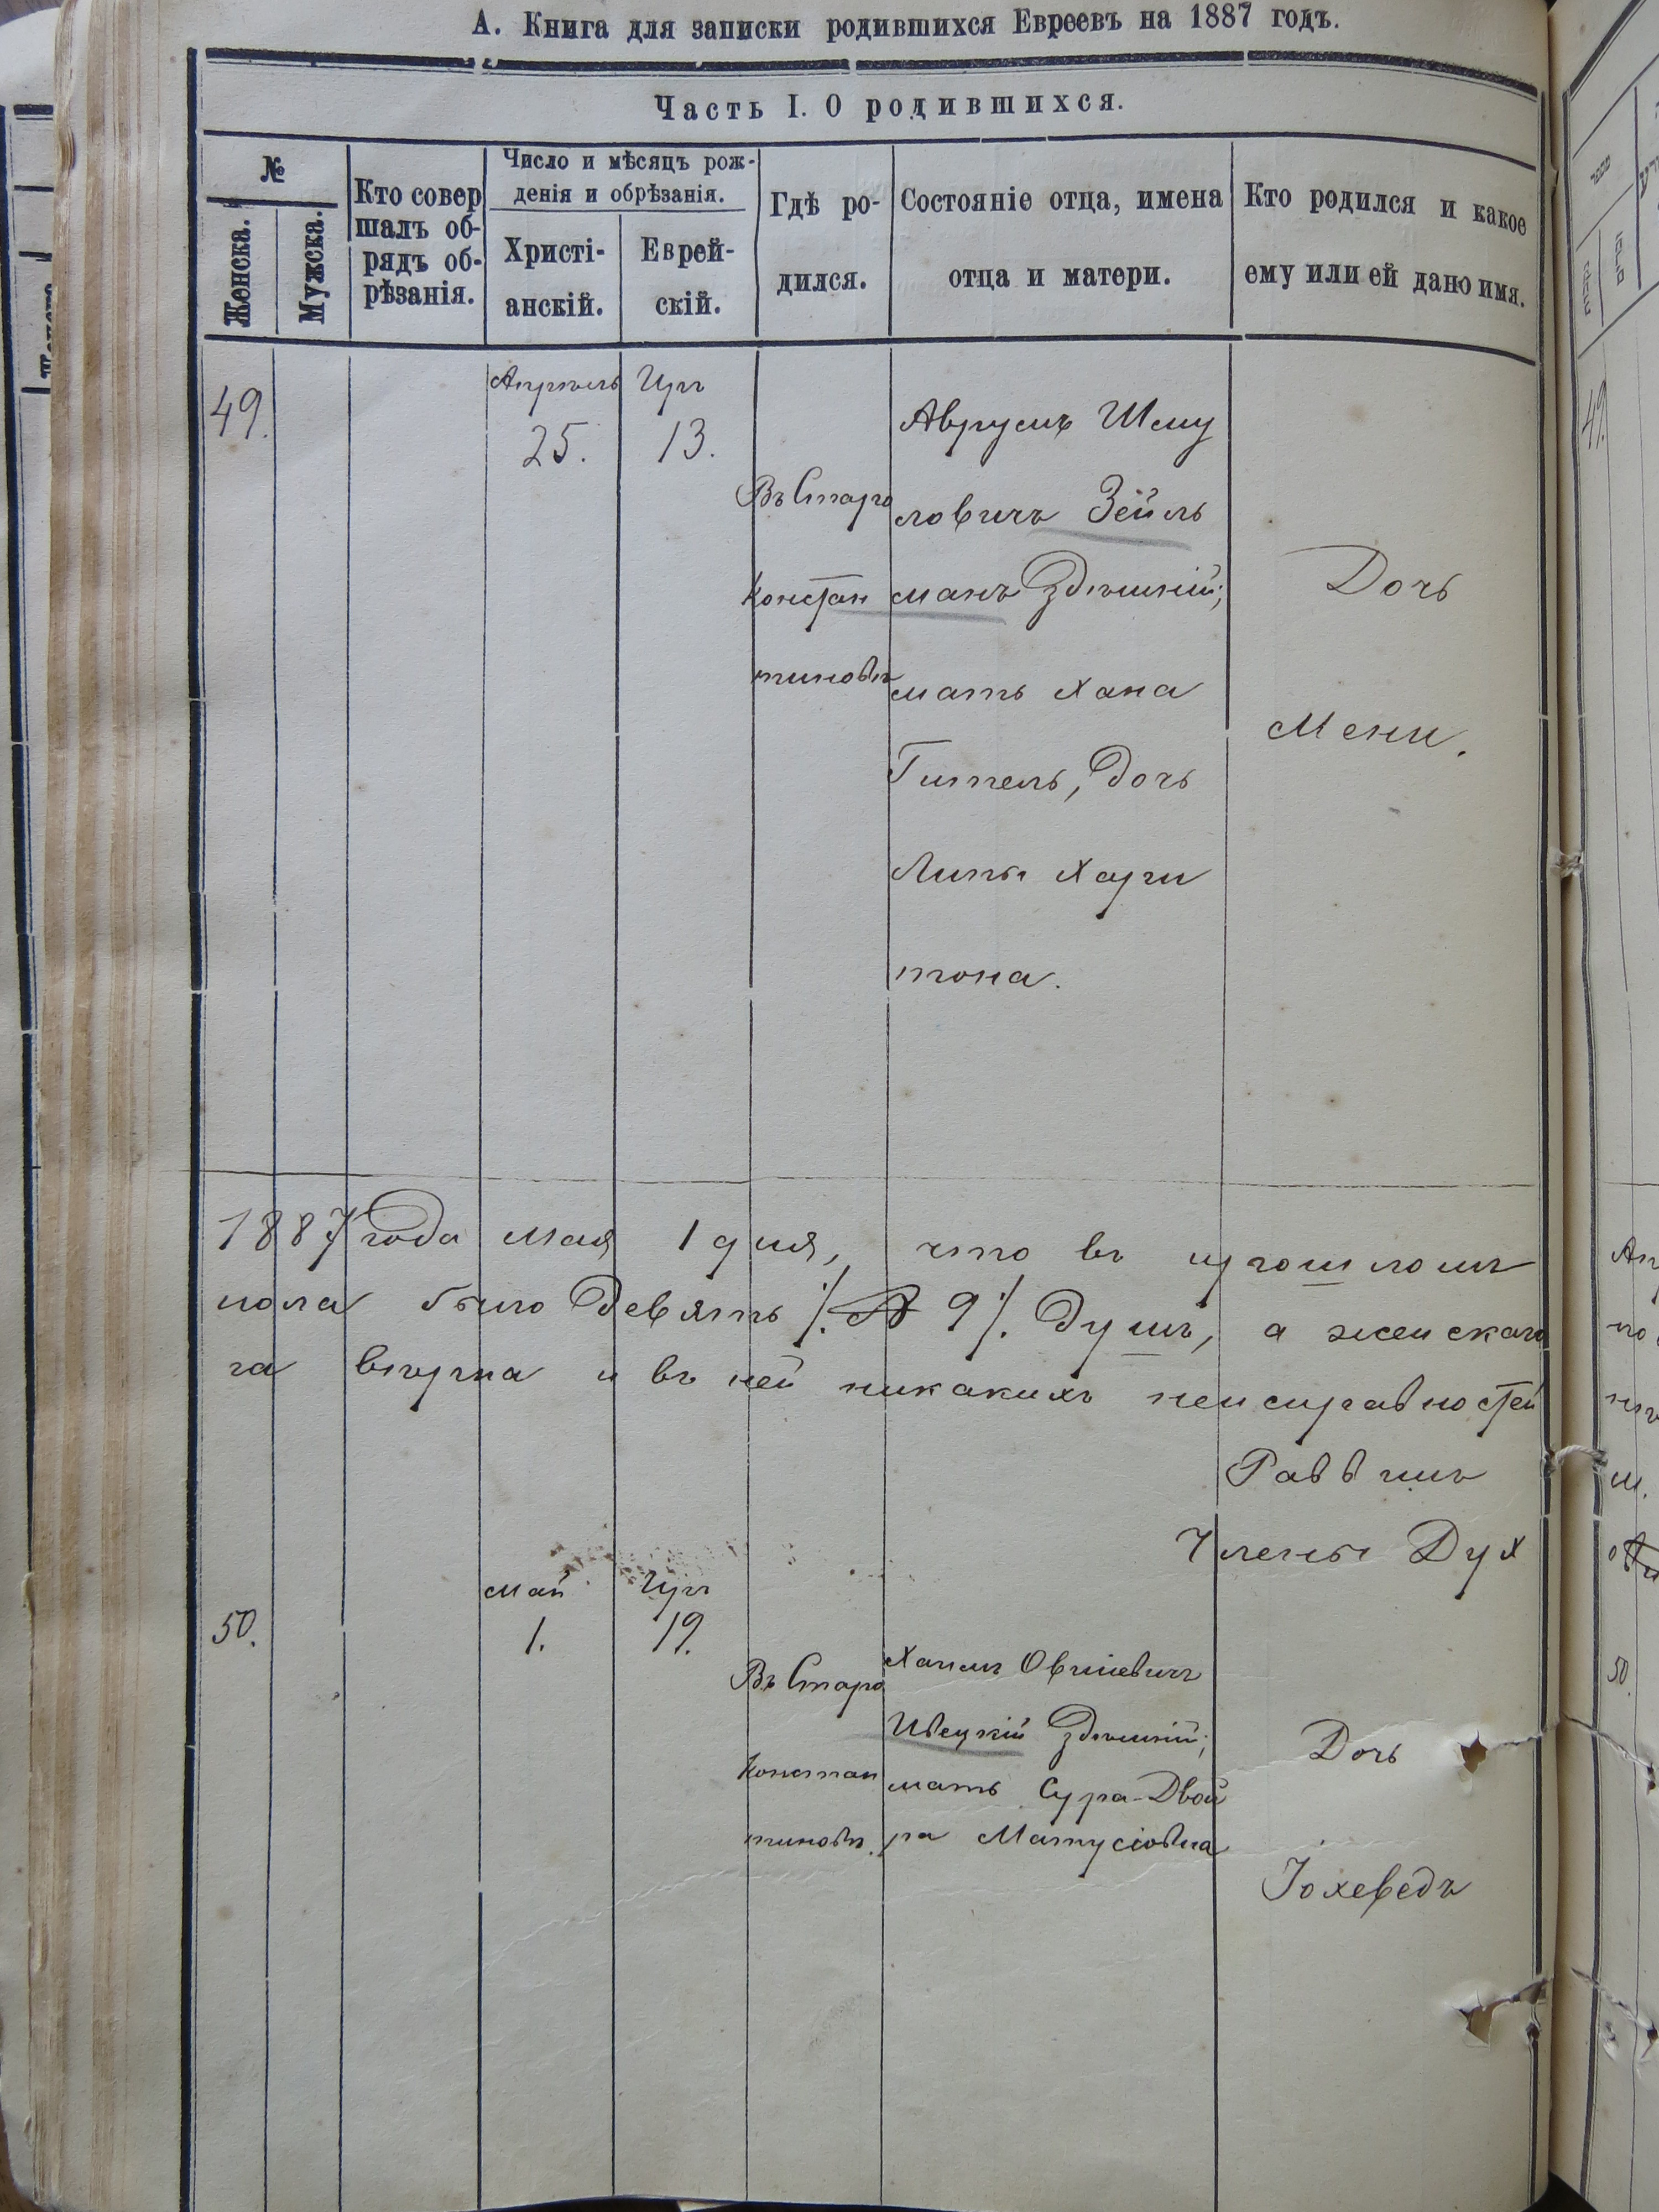 А. Книга для записки родившихся Евреевъ на 1887 годъ.
Часть I. О родившихся.
№
Женска.
Мужска.
Кто совер
шалъ об-
рядъ об-
рѣзанія.
Число и мѣсяцъ рож-
денія и обрѣзанія.
Христі-
анскій.
Еврей-
скій.
Гдѣ ро-
дился.
Состояніе отца, имена
отца и матери.
Кто родился и какое
ему или ей дано имя.
49.
Апрѣль
25.
Iyръ
13.
Въ Старо
констан
тиновѣ
Аврумъ Шму
ловичъ Зейль
манъ здѣшній;
мать Хана
Гитель, дочь
Липы Хари
тона.
Дочь
Мени.
1887 года мая 1 дня, что въ прошломъ
пола было девять ·/. 9 ·/. душъ, а женскаго
га вѣрна и въ ней никакихъ неисправностей
Раввинъ
Члены Дух
50.
Май
1.
Iyръ
19.
Въ Старо
констан
тиновѣ.
Хаимъ Овшіевичъ
Швецкій здѣшній;
мать Сура-Двой
ра Матусіовна
Дочь
Іохеведъ
49.
50.